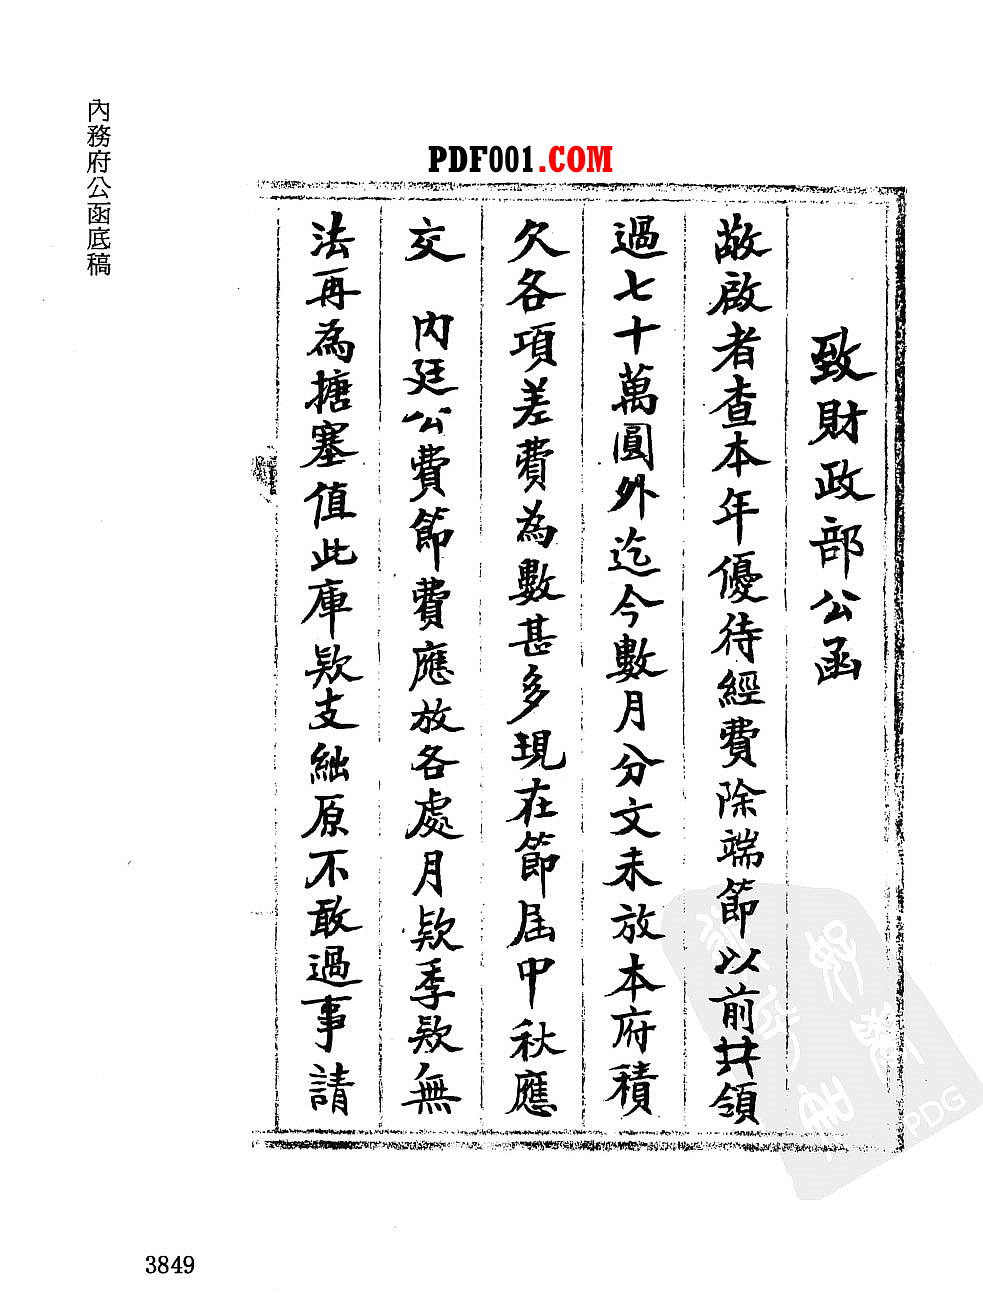 內務府公函底稿
PDF001.COM
致財政部公函
敬啟者查本年優待經費除端節以前共領
過七十萬圓外迄今數月分文未放本府積
欠各項差費為數甚多現在節屆中秋應
交　內廷公費節費應放各處月款季款無
法再為搪塞值此庫款支絀原不敢過事請
PDG
3849